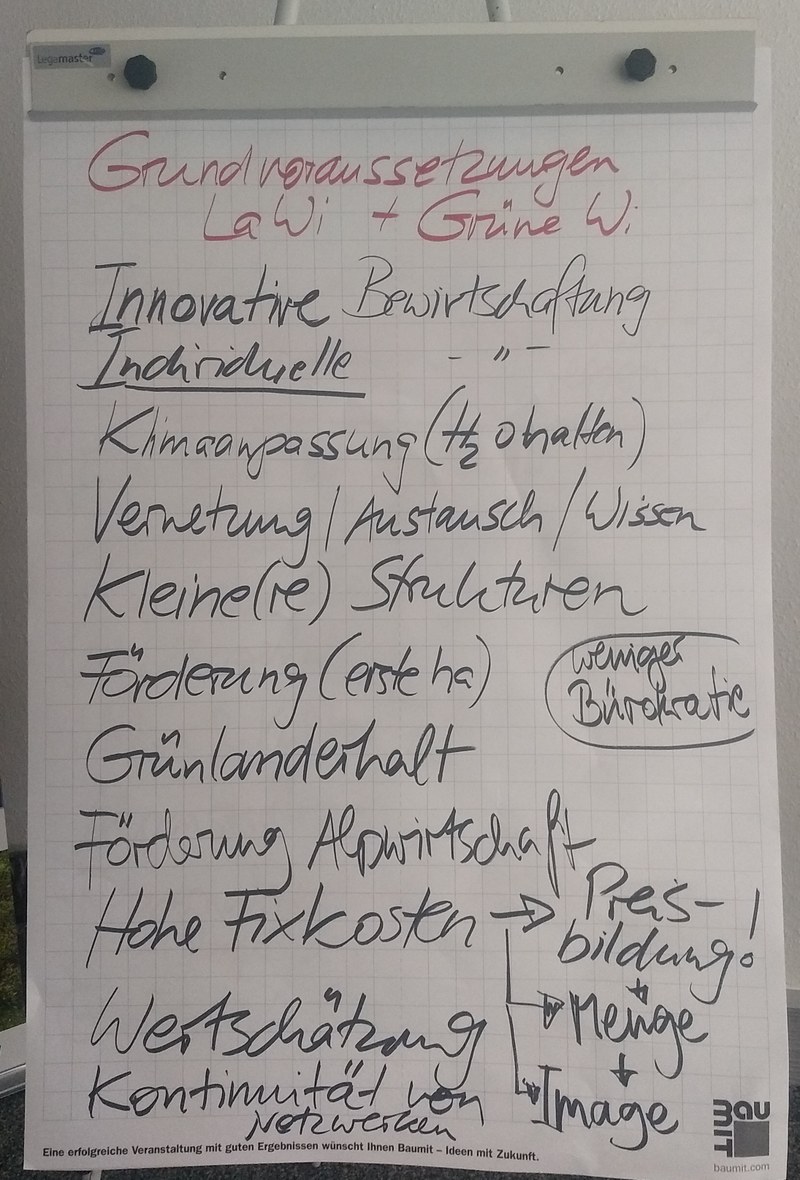 Legamaster
Grundvoraussetzungen
LaWi + Grüne Wi
Innovative Bewirtschaftung
Individuelle - " -
Klimaanpassung (H₂O halten)
Vernetzung / Austausch / Wissen
Kleine(re) Strukturen
Förderung (erste ha)
weniger
Bürokratie
Grünlanderhalt
Förderung Alpwirtschaft
Hohe Fixkosten → Preis-
bildung!
→ Menge
Wertschätzung
Kontinuität von
Netzwerken
→ Image
Eine erfolgreiche Veranstaltung mit guten Ergebnissen wünscht Ihnen Baumit – Ideen mit Zukunft.
BAUMIT
baumit.com